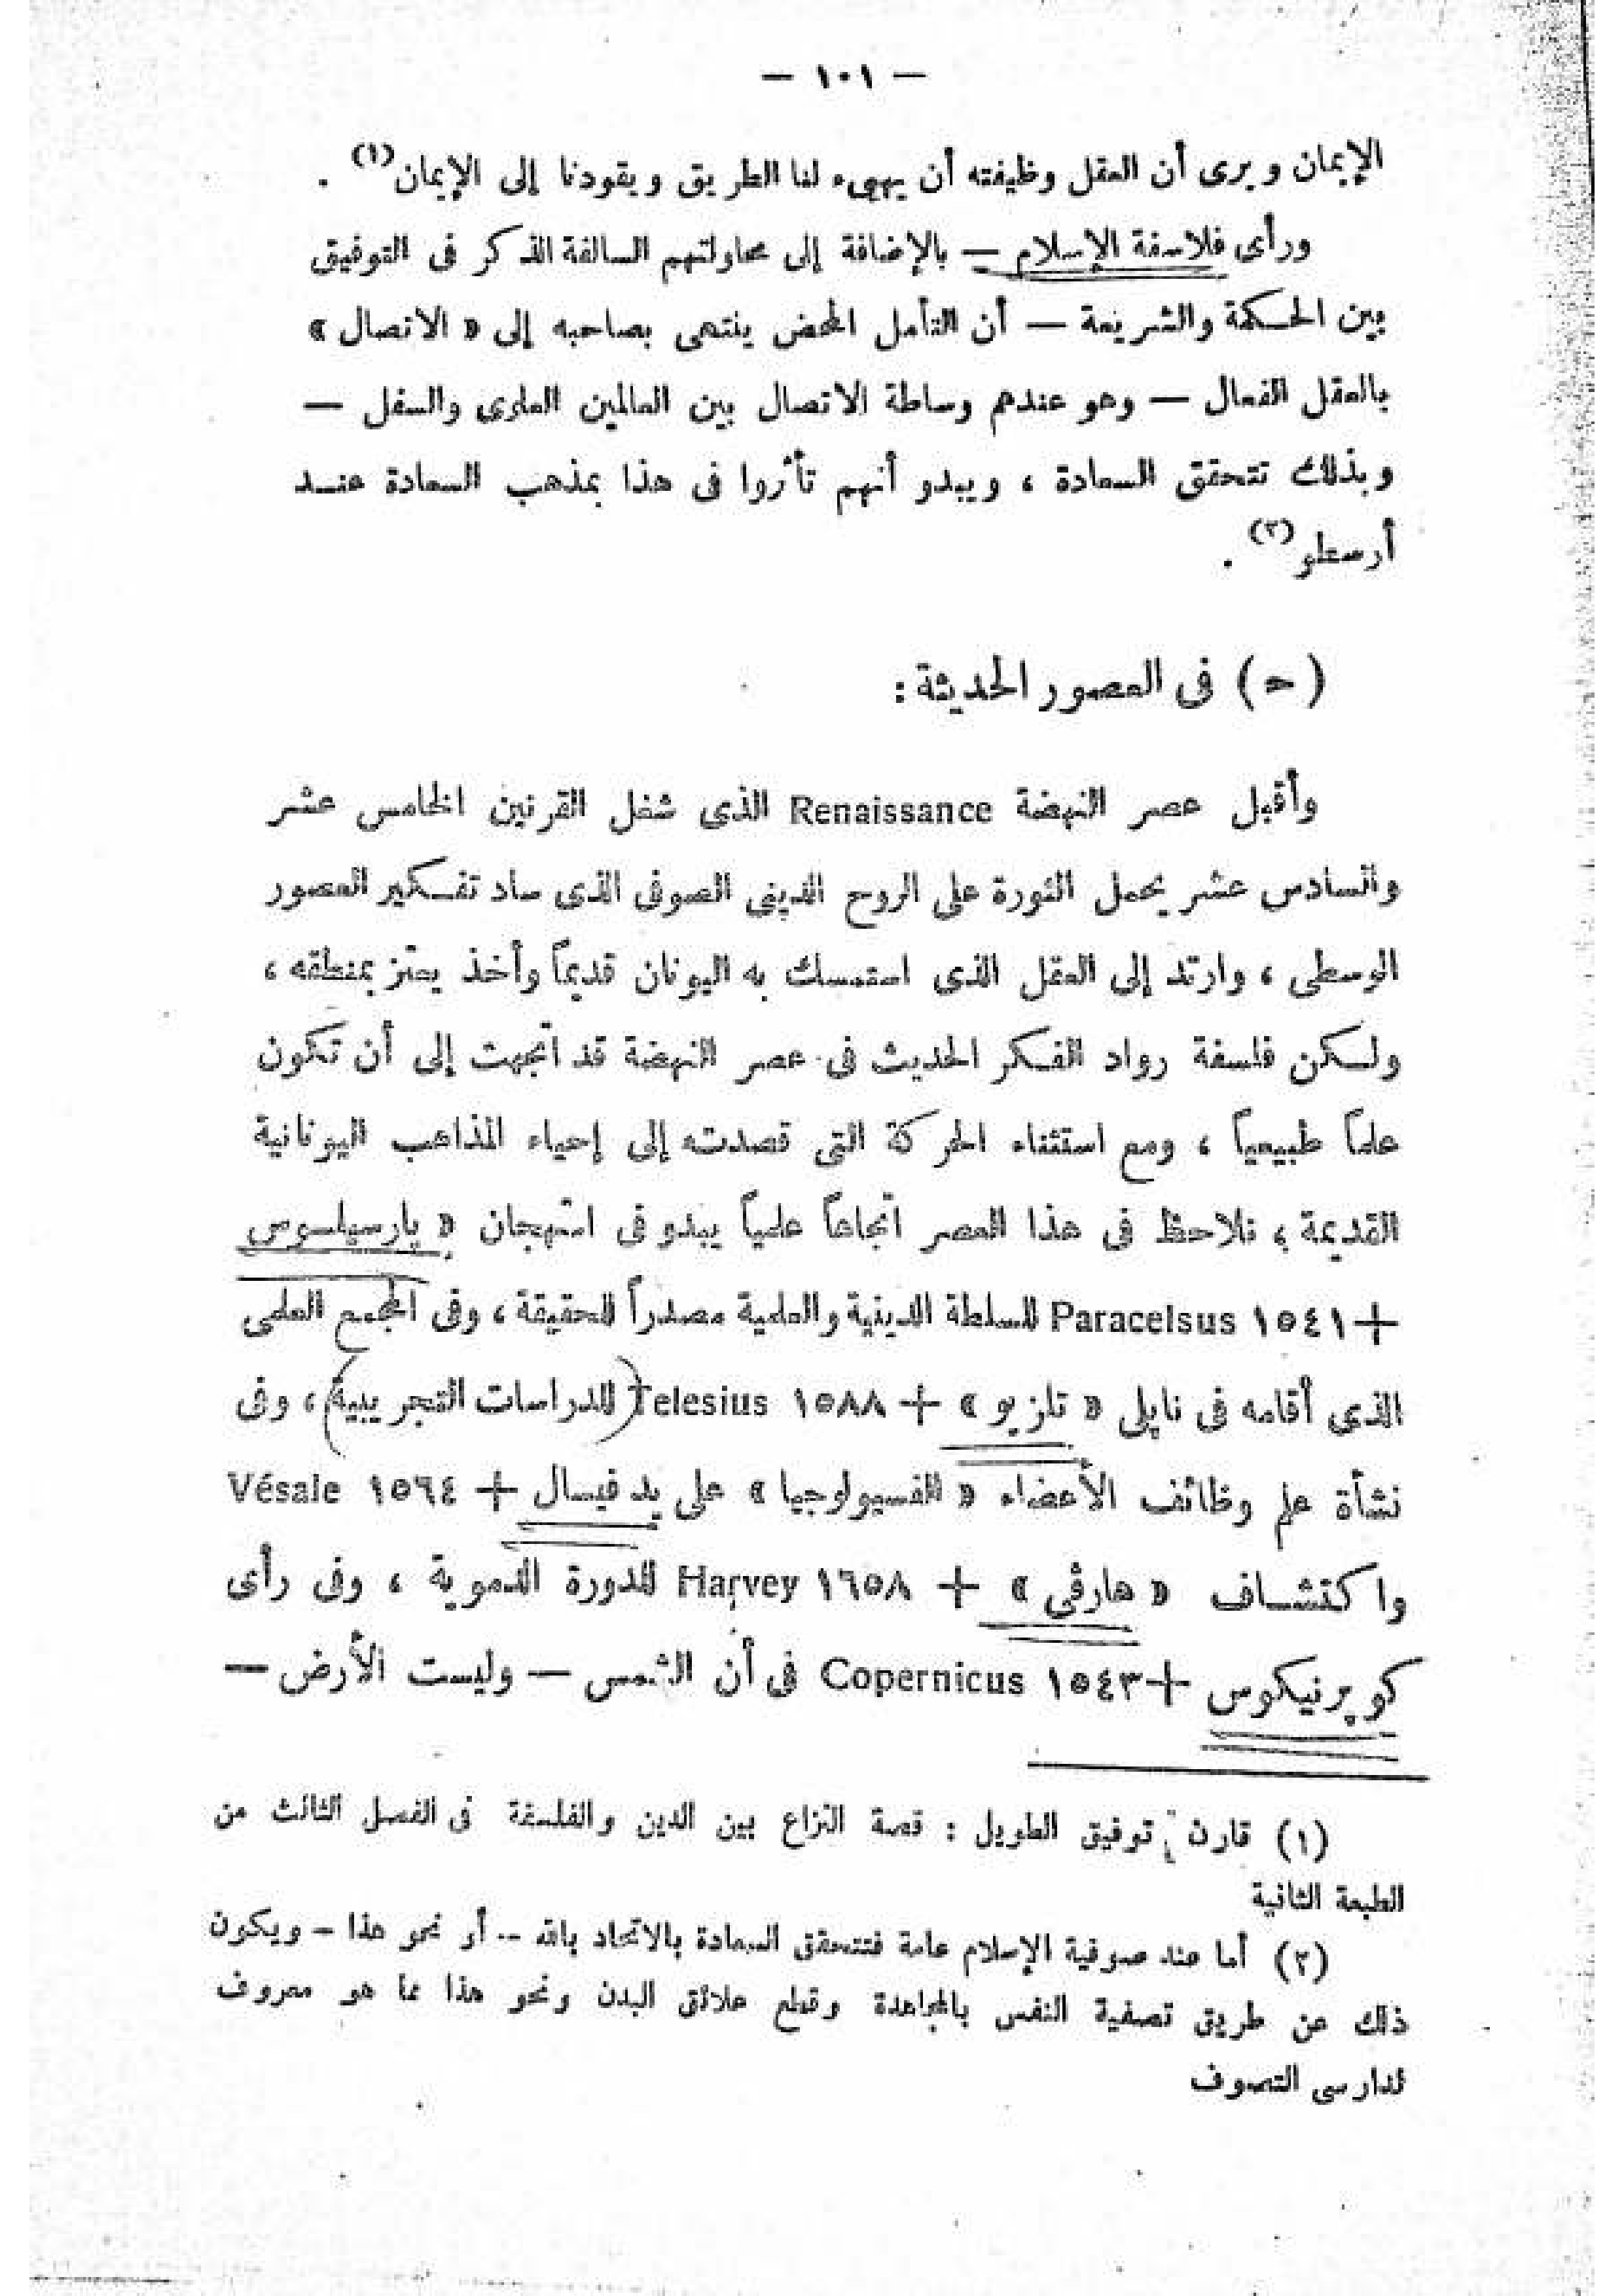 — ١٠١ —
الإيمان ويرى أن العقل وظيفته أن يهيىء لنا الطريق ويقودنا إلى الإيمان(١) .
ورأى فلاسفة الإسلام — بالإضافة إلى محاولتهم السالفة الذكر فى التوفيق
بين الحكمة والشريعة — أن التأمل المحض ينتهى بصاحبه إلى « الاتصال »
بالعقل الفعال — وهو عندهم وساطة الاتصال بين العالمين العلوى والسفلى —
وبذلك تتحقق السعادة ، ويبدو أنهم تأثروا فى هذا بمذهب السعادة عند
أرسطو(٢) .
(ح) فى العصور الحديثة :
وأقبل عصر النهضة Renaissance الذى شغل القرنين الخامس عشر
والسادس عشر يحمل الثورة على الروح الدينى الصوفى الذى ساد تفكير العصور
الوسطى ، وارتد إلى العقل الذى استمسك به اليونان قديماً وأخذ يعتز بمنطقه ،
ولكن فلسفة رواد الفكر الحديث فى عصر النهضة قد اتجهت إلى أن تكون
علماً طبيعياً ، ومع استثناء الحركة التى قصدت إلى إحياء المذاهب اليونانية
القديمة ، نلاحظ فى هذا العصر اتجاهاً علمياً يبدو فى استهجان « پارسيلسوس
+ ١٥٤١ Paracelsus للسلطة الدينية والعلمية مصدراً للحقيقة ، وفى المجمع العلمى
الذى أقامه فى نابلى « تلزيو » + ١٥٨٨ Telesius للدراسات التجريبية ، وفى
نشأة علم وظائف الأعضاء « الفسيولوجيا » على يد فيسال + ١٥٦٤ Vésale
واكتشاف « هارڤى » + ١٦٥٨ Harvey للدورة الدموية ، وفى رأى
كوپرنيكوس + ١٥٤٣ Copernicus فى أن الشمس — وليست الأرض —
(١) قارن توفيق الطويل : قصة النزاع بين الدين والفلسفة فى الفصل الثالث من
الطبعة الثانية
(٢) أما عند صوفية الإسلام عامة فتتحقق السعادة بالاتحاد بالله -- أو نحو هذا - ويكون
ذلك عن طريق تصفية النفس بالمجاهدة وقطع علائق البدن ونحو هذا مما هو معروف
لدارسى التصوف